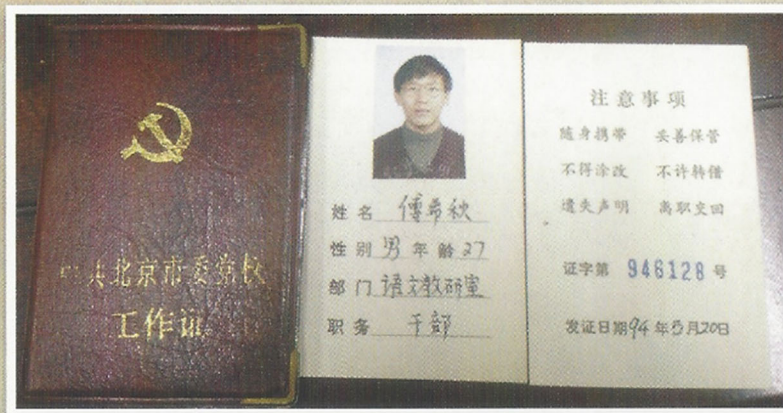 中共北京市委党校
工作证
姓名 傅希秋
性别 男 年龄 27
部门 语文教研室
职务 干部
注意事项
随身携带 妥善保管
不得涂改 不许转借
遗失声明 离职交回
证字第 946128 号
发证日期94年5月20日